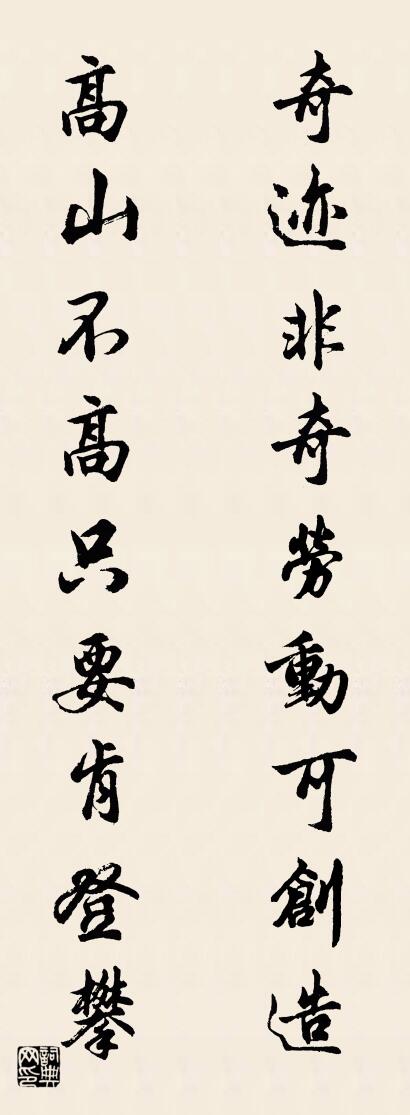 奇迹非奇勞動可創造
高山不高只要肯登攀
詞典网印